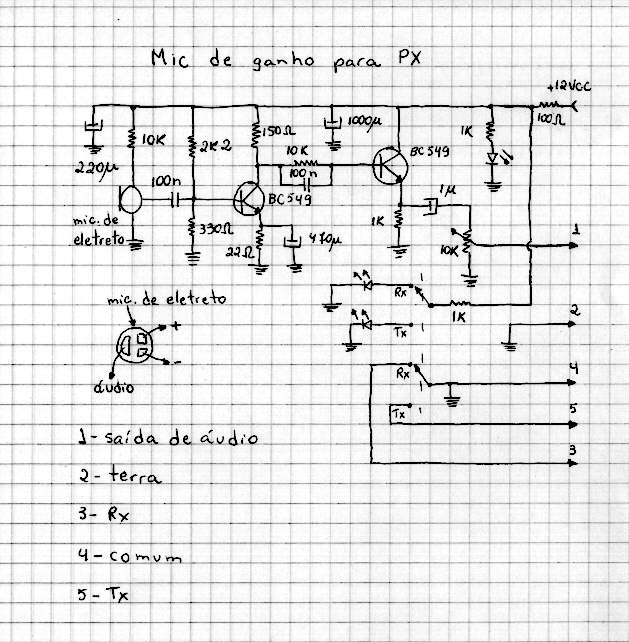 Mic de ganho para PX
+12VCC
220µ
10K
2K2
150Ω
1000µ
1K
100Ω
10K
100n
BC549
100n
BC549
1µ
mic. de
eletreto
330Ω
22Ω
470µ
1K
10K
1
Rx
1K
2
Tx
mic. de eletreto
+
-
áudio
Rx
4
Tx
5
3
1- saída de áudio
2- terra
3- Rx
4- comum
5- Tx